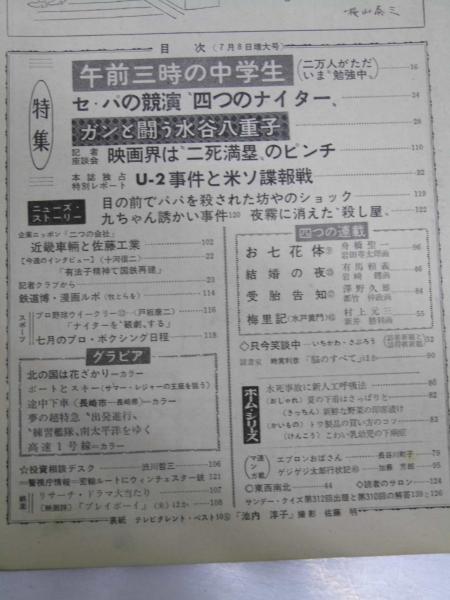 桜山泰三
目次(7月8日増大号)
特集
午前三時の中学生(二万人がただいま〝勉強中〟) 16
セ・パの競演〝四つのナイター〟 24
ガンと闘う水谷八重子 28
記者座談会 映画界は〝二死満塁〟のピンチ 110
本誌独占特別レポート U-2事件と米ソ諜報戦 22
ニューズ・ストーリー
目の前でパパを殺された坊やのショック 119
九ちゃん誘かい事件120 夜霧に消えた〝殺し屋〟 122
企業ニッポン「二つの会社」
近畿車輛と佐藤工業 102
【今週のインタビュー】(十河信二) 22
「有法子精神で国鉄再建」
記者クラブから 23
鉄道博・漫画ルポ(牧とらを) 114
スポーツ
プロ野球ウイークリー⑫―(戸板康二) 116
「ナイターを〝観劇〟する」
七月のプロ・ボクシング日程 118
グラビア
北の国は花ざかり―カラー
ボートとスキー(サマー・レジャーの王座を狙う)
途中下車(長崎市―長崎県)カラー
夢の超特急〝出発進行〟
〝練習艦隊〟南太平洋をゆく
高速1号線―カラー
☆投資相談デスク 渋川哲三 106
=警視庁情報=宏輪ルートにウィンチェスター銃 121
リサーチ・ドラマ大当たり 107
【映画評】「プレイボーイ」(米)ほか 108
四つの連載
お七花体 舟橋聖一 岩田専太郎画 96
結婚の夜 有馬頼義 岩崎鐸画 86
受胎告知 澤野久雄 都竹伸政画
梅里記(水戸黄門) 村上元三 新井勝利画
◇只今笑談中―いちかわ・さぶろう 52
読書室 時実利彦「脳のすべて」ほか 90
ホーム・シリーズ
水死事故に新人工呼吸法 86
(おしゃれ)夏の下着はさっぱりと 82
(きっちん)新鮮な野菜の即席漬け
(かいもの)トワ製品の買い方のコツ 83
(けんこう)こわい乳幼児の下痢症
マンガ連載
エプロンおばさん 長谷川町子 79
ゲジゲジ太郎行状記 加藤芳郎 95
◎東西南北 44
◇読者のサロン 124
サンデー・クイズ第312回出題と第310回の解答139と126
表紙 テレビタレント・ベスト10⑤「池内淳子」撮影 佐藤明